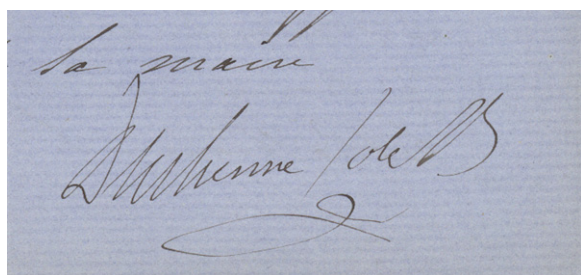 la main
Duchenne (de B)